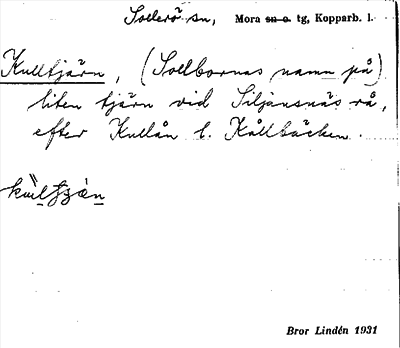 Sollerö sn, Mora sn o. tg, Kopparb. l.
Kulltjärn, (Sollbornas namn på)
liten tjärn vid Siljansnäs rå,
efter Kullån l. Kållbäcken.
Bror Lindén 1931